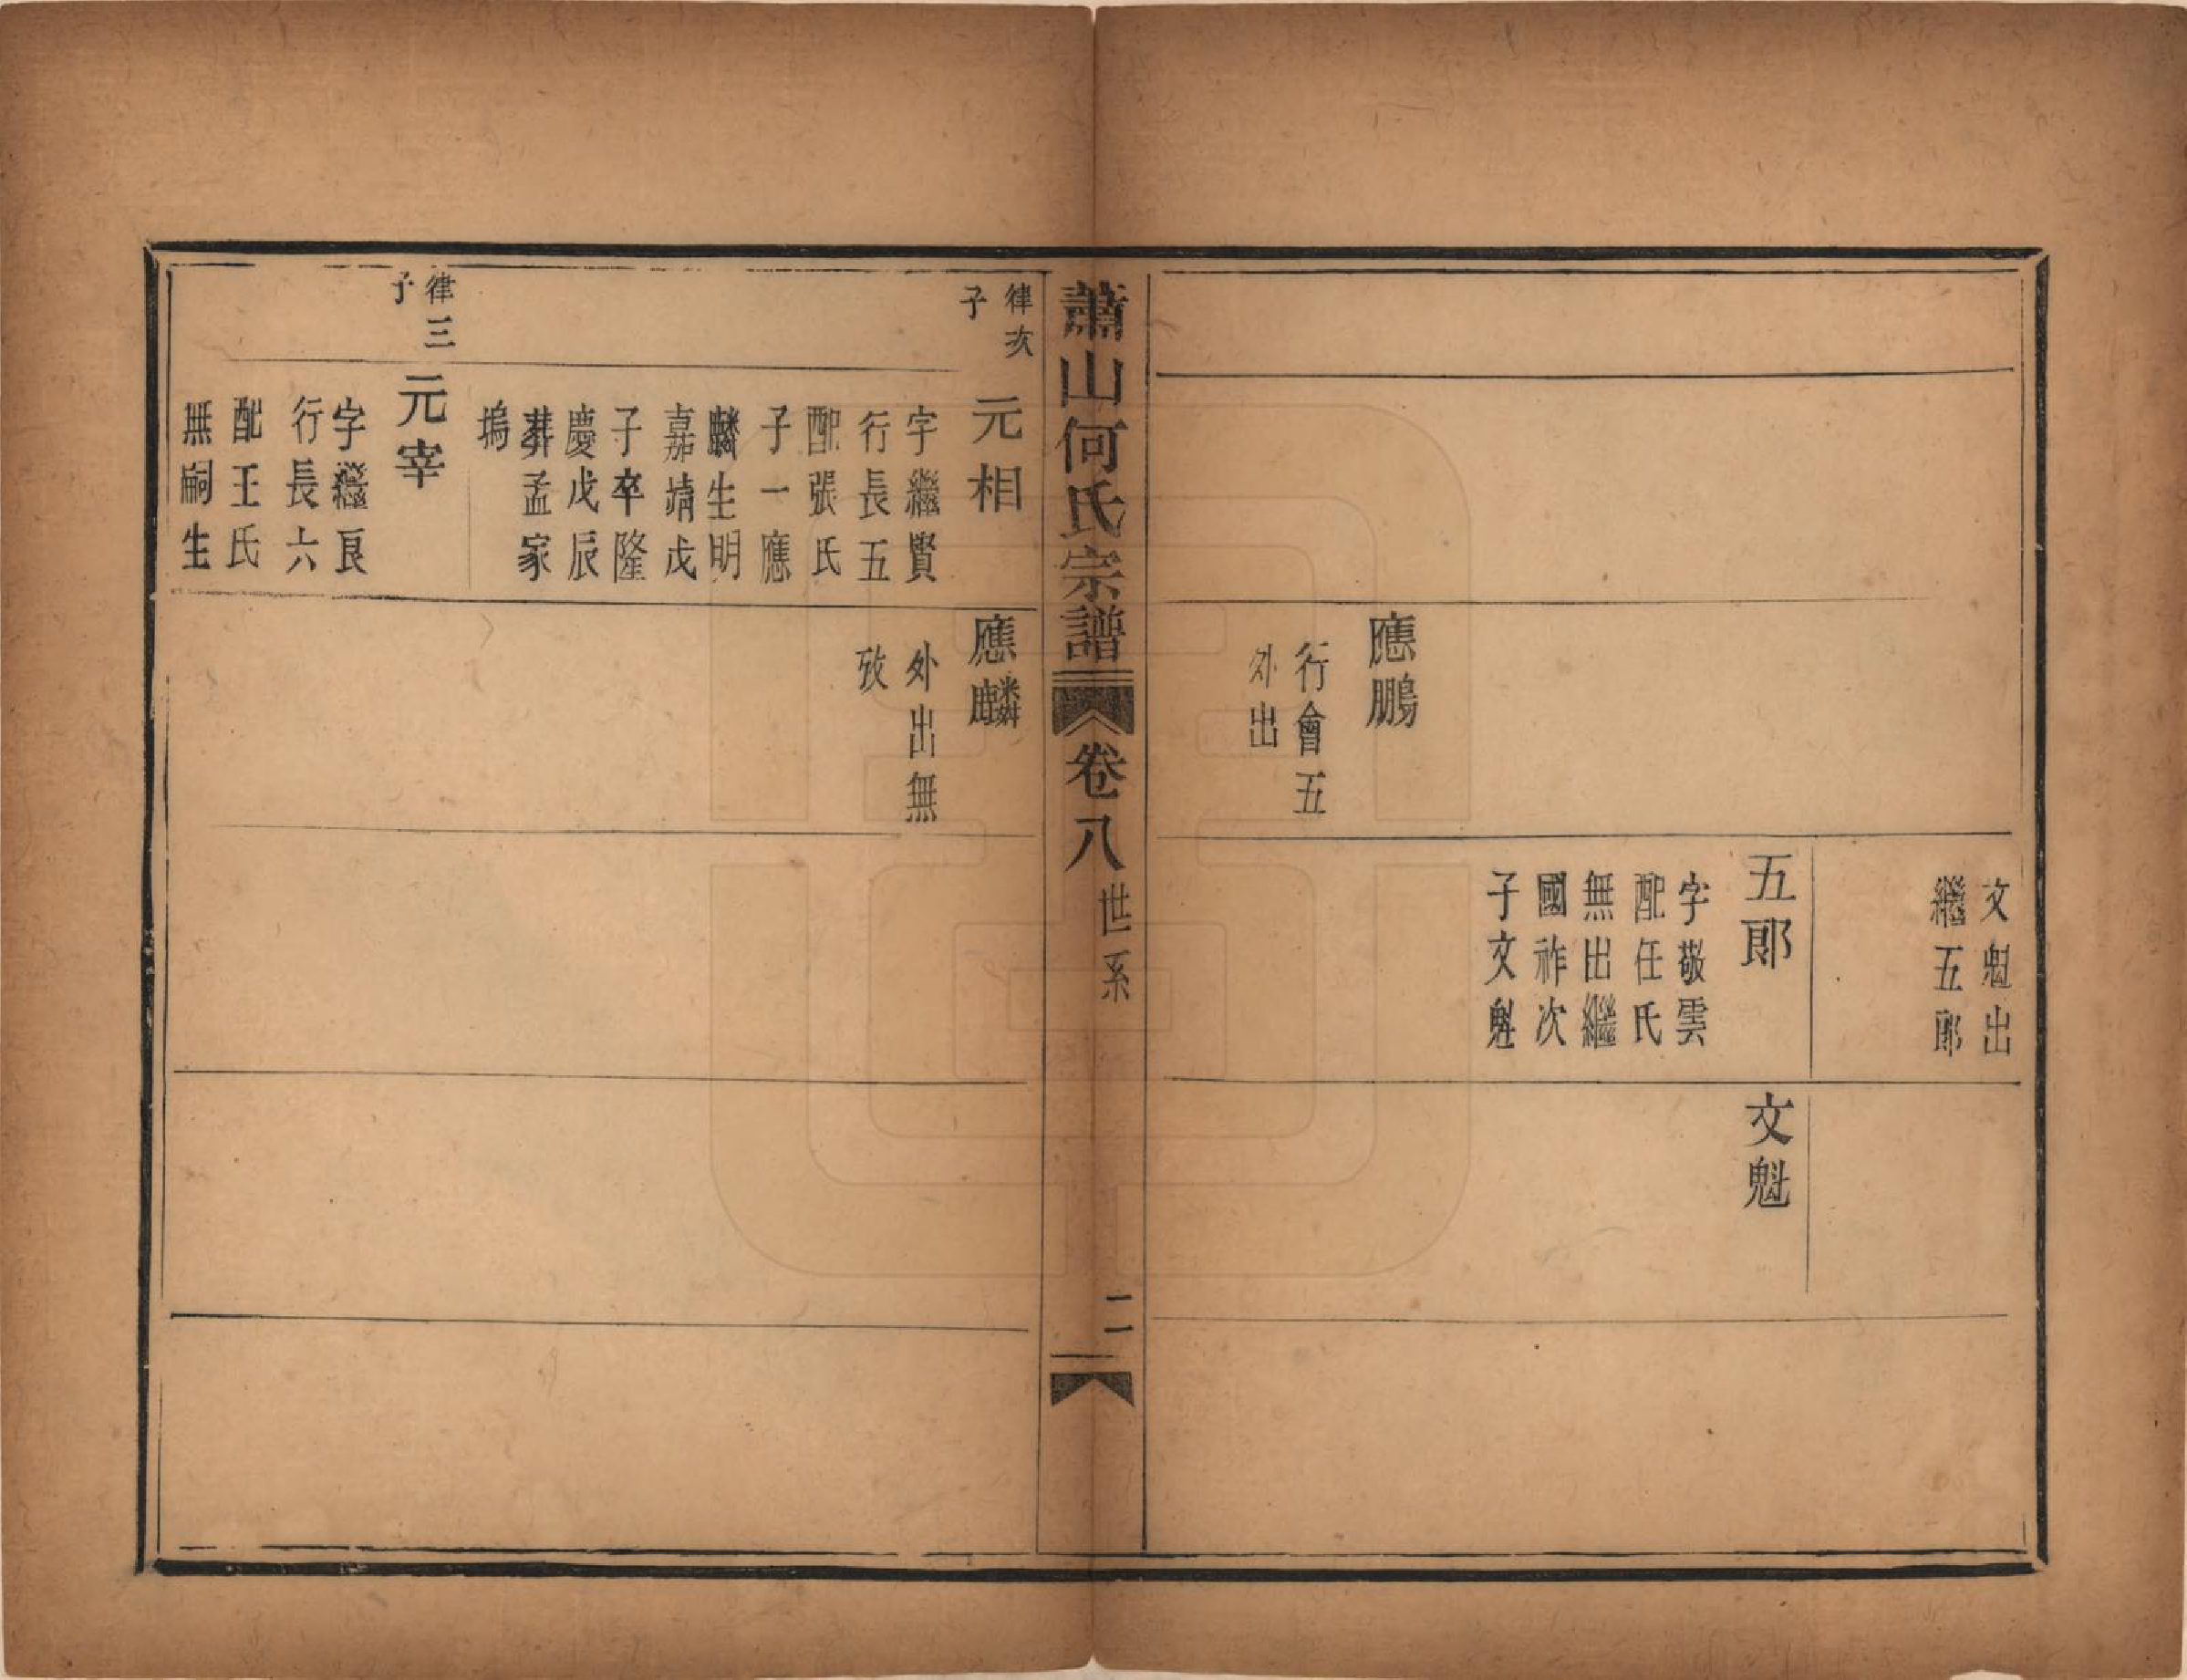 應鵬
行會五
外出
文魁出
繼五郎
五郎
字敬雲
配任氏
無出繼
國祚次
子文魁
文魁
蕭山何氏宗譜
卷八
世系
二
律次
子
元相
字繼賢
行長五
配張氏
子一應
麟生明
嘉靖戊
子卒隆
慶戊辰
葬孟家
塢
律三
子
元宰
字繼良
行長六
配王氏
無嗣生
應麟
外出無
攷